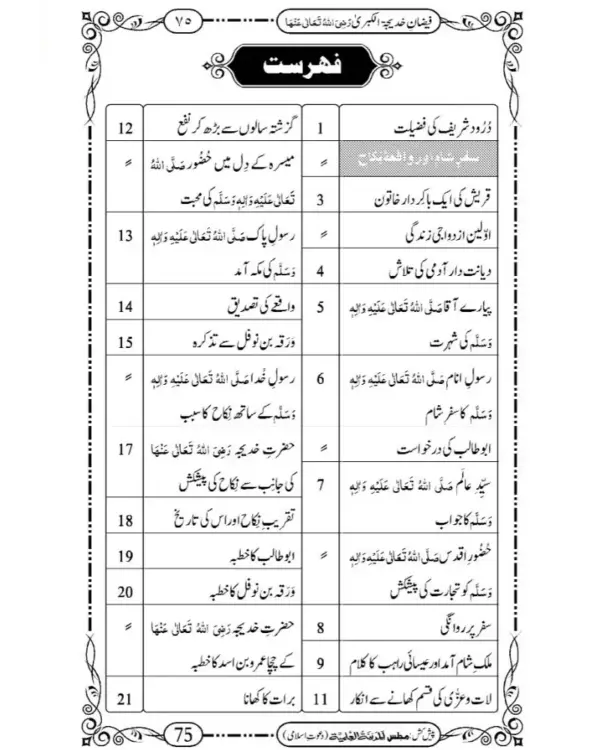 فیضانِ خدیجۃ الکبریٰ رَضِیَ اللہُ تَعَالٰی عَنْہَا
۷۵
فہرست
دُرُود شریف کی فضیلت
1
سفرِ شام اور واقعۂ نکاح
〃
قریش کی ایک باکردار خاتون
3
اوّلین ازدواجی زندگی
〃
دیانت دار آدمی کی تلاش
4
پیارے آقا صَلَّی اللہُ تَعَالٰی عَلَیْہِ وَاٰلِہٖ
5
وَسَلَّم کی شہرت
رسولِ انام صَلَّی اللہُ تَعَالٰی عَلَیْہِ وَاٰلِہٖ
6
وَسَلَّم کا سفرِ شام
ابوطالب کی درخواست
〃
سیِّدِ عالَم صَلَّی اللہُ تَعَالٰی عَلَیْہِ وَاٰلِہٖ
7
وَسَلَّم کا جواب
حُضُورِ اقدس صَلَّی اللہُ تَعَالٰی عَلَیْہِ وَاٰلِہٖ
〃
وَسَلَّم کو تجارت کی پیشکش
سفر پر روانگی
8
ملکِ شام آمد اور عیسائی راہب کا کلام
9
لات و عزّٰی کی قسم کھانے سے انکار
11
گزشتہ سالوں سے بڑھ کر نفع
12
میسرہ کے دِل میں حُضُور صَلَّی اللہُ
〃
تَعَالٰی عَلَیْہِ وَاٰلِہٖ وَسَلَّم کی محبت
رسولِ پاک صَلَّی اللہُ تَعَالٰی عَلَیْہِ وَاٰلِہٖ
13
وَسَلَّم کی مکہ آمد
واقعے کی تصدیق
14
وَرَقہ بن نوفل سے تذکرہ
15
رسولِ خدا صَلَّی اللہُ تَعَالٰی عَلَیْہِ وَاٰلِہٖ
〃
وَسَلَّم کے ساتھ نِکاح کا سبب
حضرتِ خدیجہ رَضِیَ اللہُ تَعَالٰی عَنْہَا
17
کی جانِب سے نِکاح کی پیشکش
تقریبِ نِکاح اور اس کی تاریخ
18
ابوطالب کا خطبہ
19
وَرَقہ بن نوفل کا خطبہ
20
حضرتِ خدیجہ رَضِیَ اللہُ تَعَالٰی عَنْہَا
〃
کے چچا عمرو بن اسد کا خطبہ
برات کا کھانا
21
پیش کش: مجلس المدینۃ العلمیۃ (دعوتِ اسلامی)
75